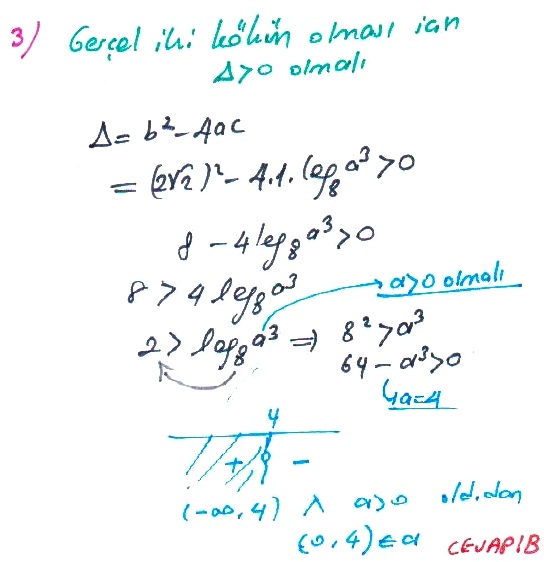 3) Gerçel iki kökün olması için
Δ>0 olmalı
Δ= b²-4ac
= (2√2)²- 4.1.log₈a³>0
8 - 4log₈a³>0
8 > 4 log₈a³
a>0 olmalı
2 > log₈a³ ⇒ 8²>a³
64-a³>0
↳a=4
4
+ -
(-∞,4) ∧ a>0 old.dan
(0,4)∈a CEVAP:B